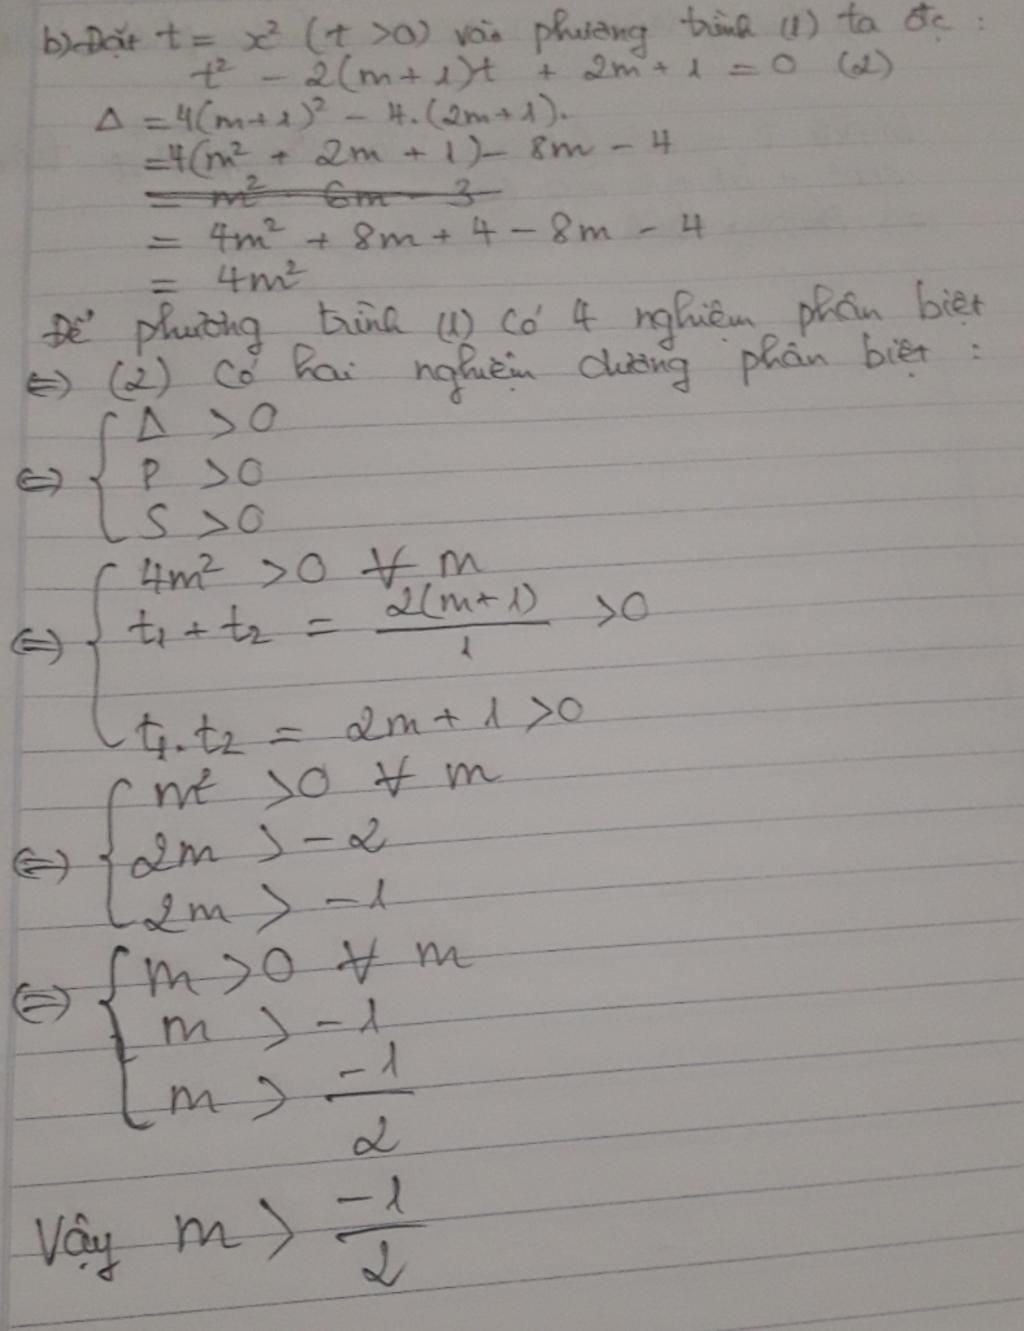 b) Đặt t = x² (t > 0) vào phương trình (1) ta đc :
t² - 2(m+1)t + 2m+1 = 0 (2)
Δ = 4(m+1)² - 4.(2m+1).
= 4(m² + 2m + 1) - 8m - 4
= m² 6m 3
= 4m² + 8m + 4 - 8m - 4
= 4m²
Để phương trình (1) có 4 nghiệm phân biệt
⇔ (2) có hai nghiệm dương phân biệt :
⇔ { Δ > 0
P > 0
S > 0
⇔ { 4m² > 0 ∀ m
t₁ + t₂ = 2(m+1)/1 > 0
t₁.t₂ = 2m + 1 > 0
⇔ { m² > 0 ∀ m
2m > -2
2m > -1
⇔ { m > 0 ∀ m
m > -1
m > -1/2
Vậy m > -1/2